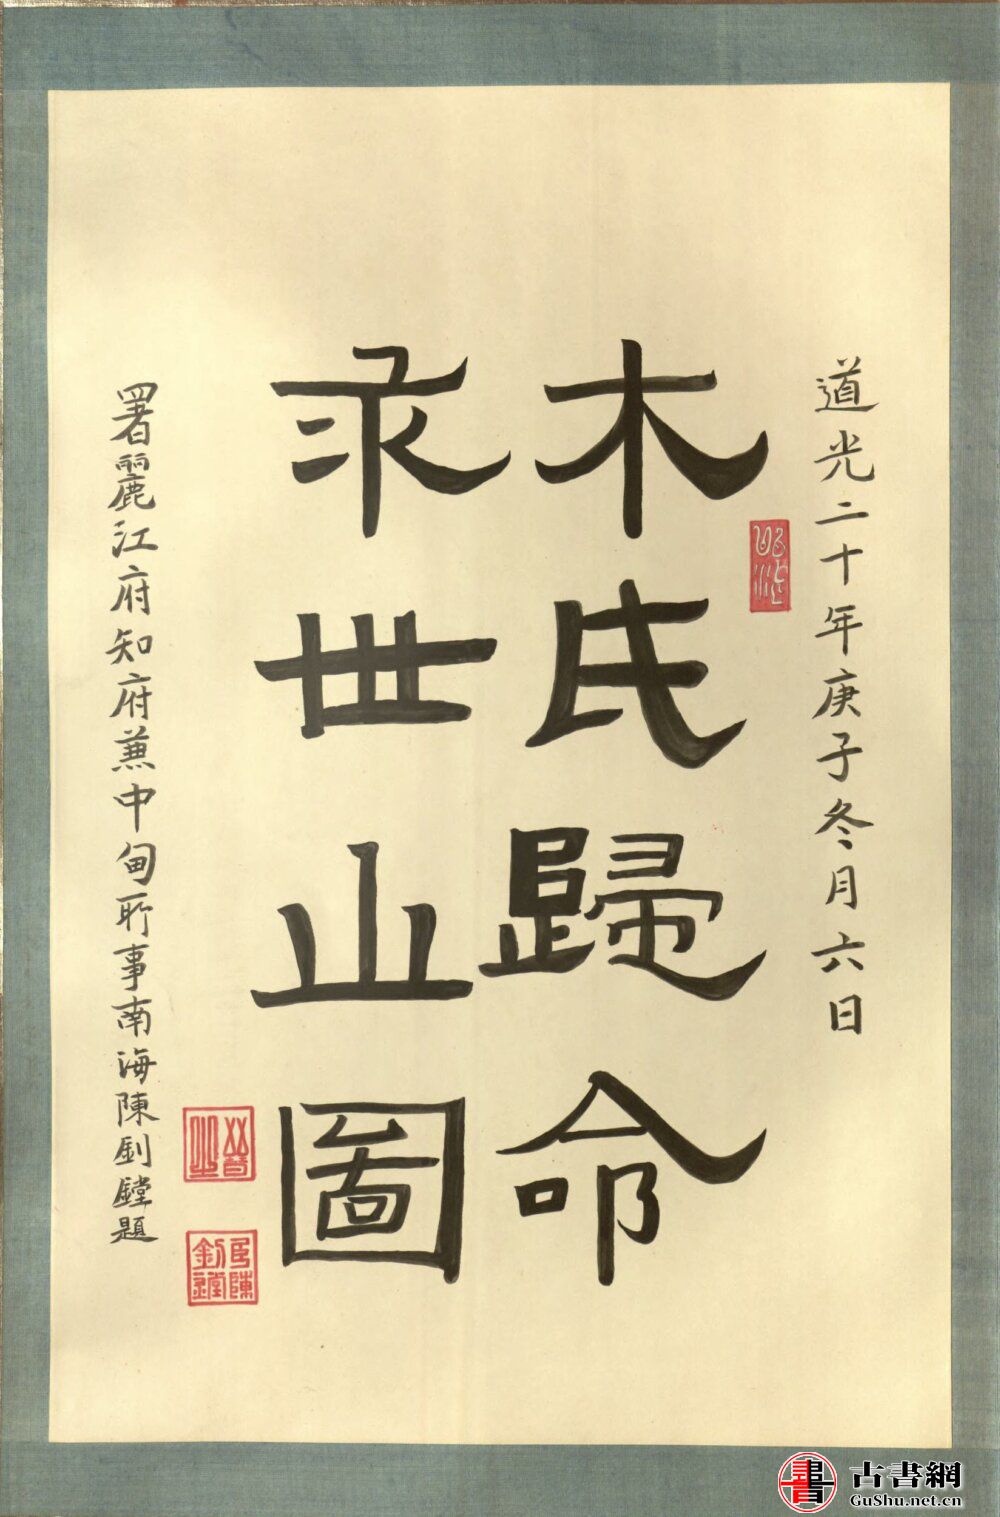 道光二十年庚子冬月六日
木氏歸命
求世㞢圖
署麗江府知府兼中甸所事南海陳釗鏜題
臣陳釗鏜
古書網
GuShu.net.cn